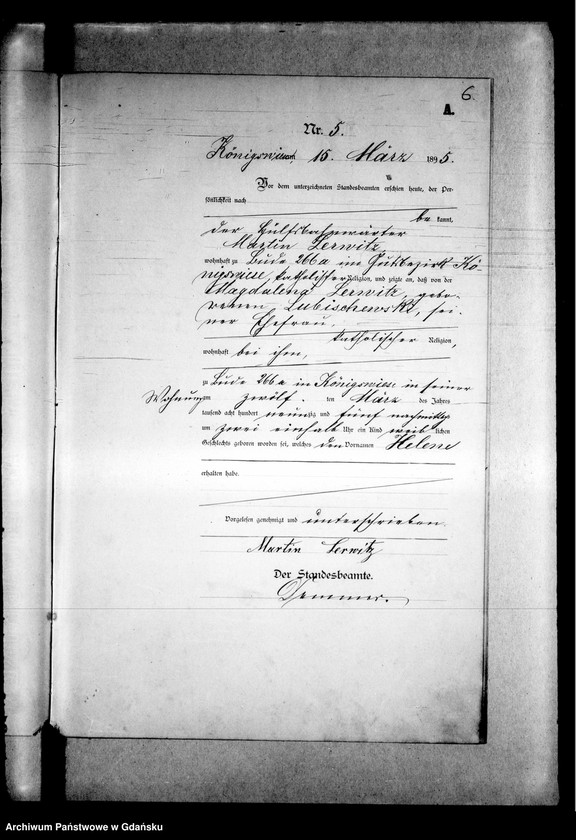 6.
A.
Nr. 5.
Königswiese, 15. März 1895.
Vor dem unterzeichneten Standesbeamten erschien heute, der Per-
sönlichkeit nach
be kannt,
der Hülfsbahnwärter
Martin Lerwitz,
wohnhaft zu Bude 266a im Gutsbezirk Kö-
nigswiese, katholischer Religion, und zeigte an, daß von der
Magdalena Lerwitz, gebo-
renen Lubischewski, sei-
ner Ehefrau,
katholischer Religion,
wohnhaft bei ihm,
zu Bude 266a in Königswiese in seiner
Wohnung am zwölf ten März des Jahres
tausend acht hundert neunzig und fünf nachmittags
um zwei einhalb Uhr ein Kind weib lichen
Geschlechts geboren worden sei, welches den Vornamen Helene
erhalten habe.
Vorgelesen, genehmigt und unterschrieben
Martin Lerwitz
Der Standesbeamte.
Demmer.
Archiwum Państwowe w Gdańsku